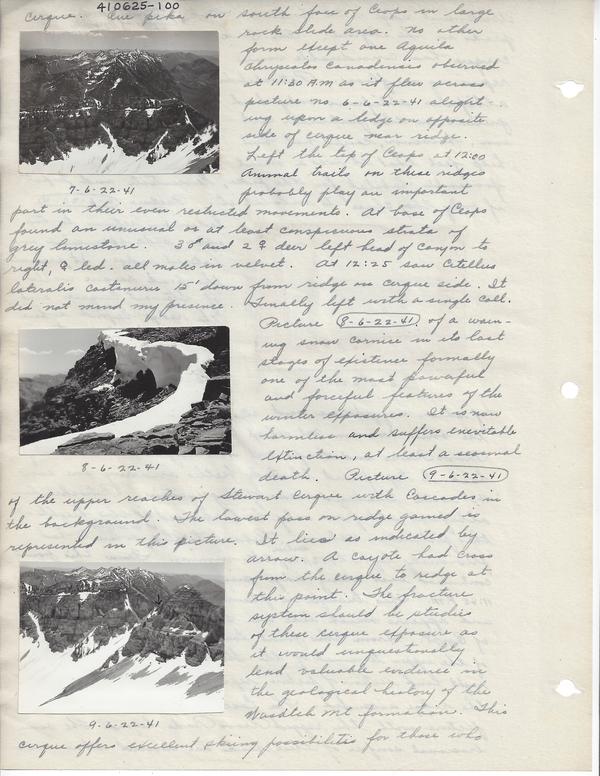 410625-100
cirque. One pika on south face of Ceops in large
rock slide area. No other
form except one Aquila
Chrysalos Canadensis observed
at 11:30 A.M as it flew across
picture no. 6-6-22-41 alight-
ing upon a ledge on opposite
side of cirque near ridge.
Left the top of Ceops at 12:00
Animal trails on these ridges
probably play an important
7-6-22-41
part in their even restricted movements. At base of Ceops
found an unusual or at least conspicuous strata of
grey limestone. 3 ♂ and 2 ♀ deer left head of canyon to
right, ♀ led. all males in velvet. At 12:25 saw Citellus
lateralis castanurus 15' down from ridge on cirque side. It
did not mind my presence. Finally left with a single call.
Picture 8-6-22-41 of a wan-
ing snow cornice in its last
stages of existence formally
one of the most powerful
and forceful features of the
winter exposures. It is now
harmless and suffers inevitable
extinction, at least a seasonal
death. Picture 9-6-22-41
8-6-22-41
of the upper reaches of Stewart Cirque with Cascades in
the background. The lowest pass on ridge gained is
represented in this picture. It lies as indicated by
arrow. A coyote had cross
from the cirque to ridge at
this point. The fracture
system should be studied
of these cirque exposure as
it would unquestionally
lend valuable evidence in
the geological history of the
Wasatch Mt formation. This
9-6-22-41
cirque offers excellent skiing possibilities for those who